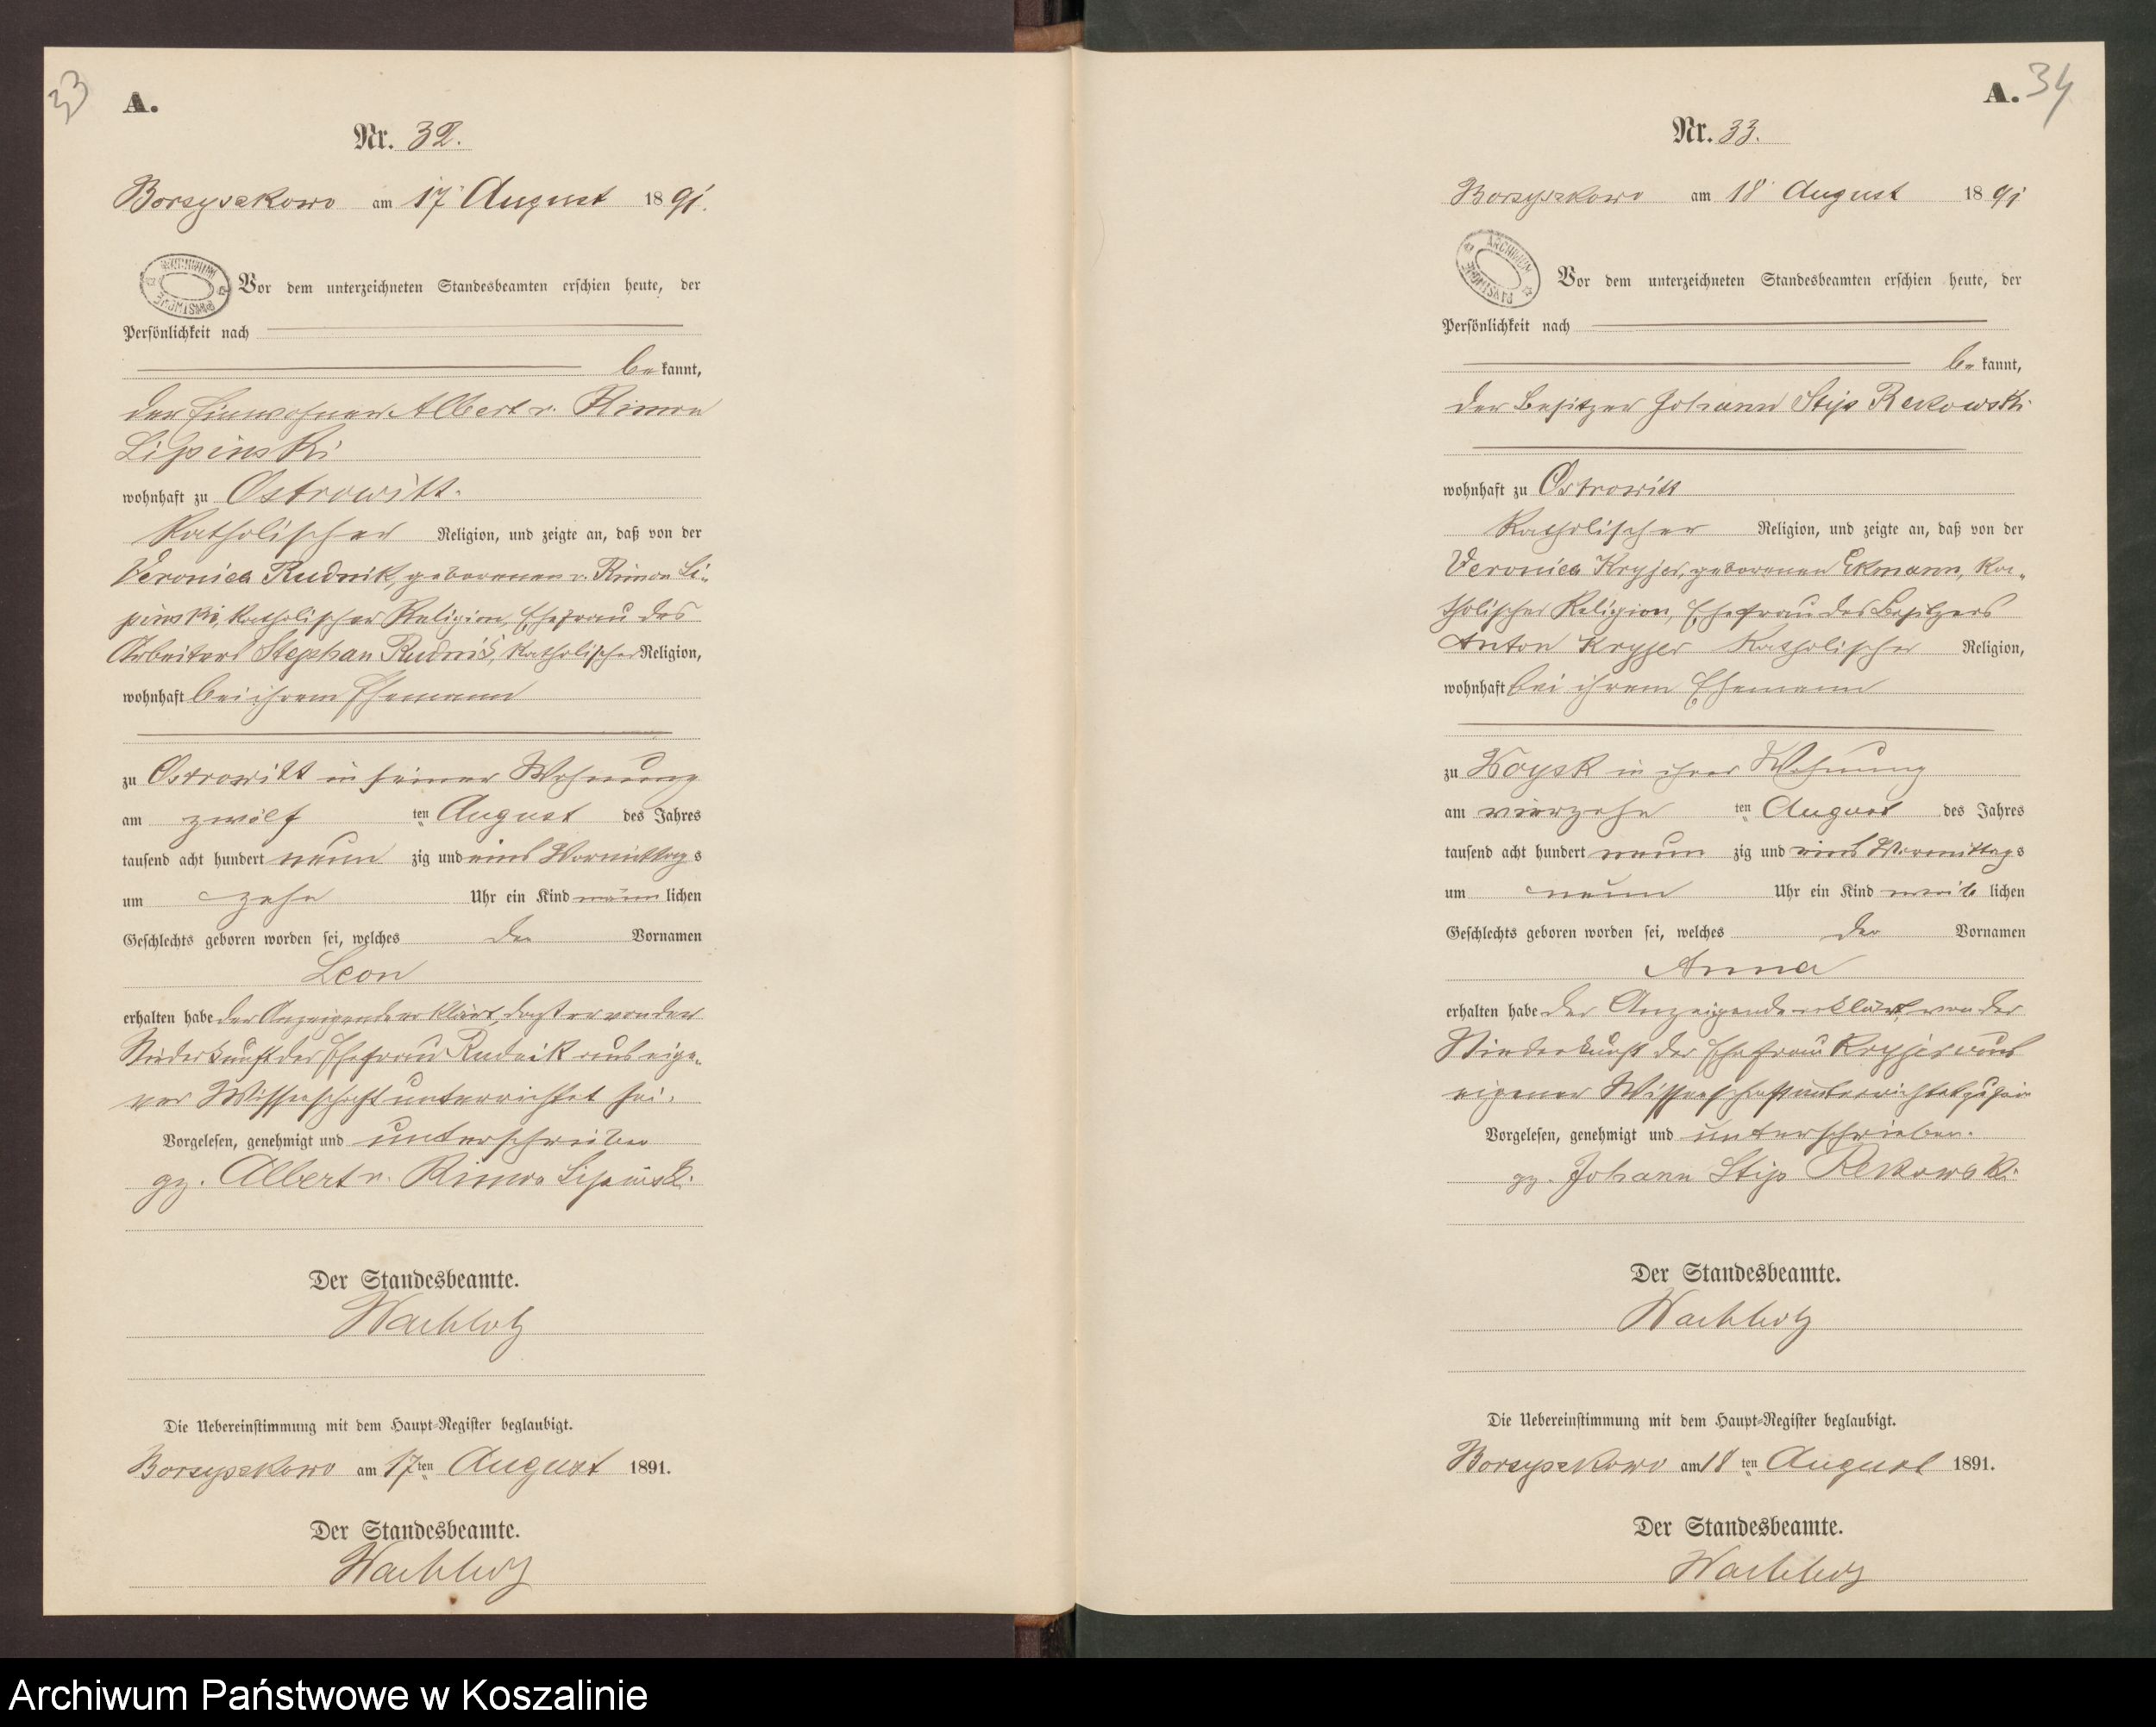 33
A.
Nr. 32.
Borzyszkowo am 17 August 1891.
ARCHIWUM PAŃSTWOWE
Vor dem unterzeichneten Standesbeamten erschien heute, der
Persönlichkeit nach
be kannt,
der Einwohner Albert v. Rimon
Lipinski
wohnhaft zu Ostrowitt.
katholischer Religion, und zeigte an, daß von der
Veronica Rudnik, geborenen v. Rimon Li-
pinski, katholischer Religion, Ehefrau des
Arbeiters Stephan Rudnik, katholischer Religion,
wohnhaft bei ihrem Ehemann
zu Ostrowitt in seiner Wohnung
am zwölf ten August des Jahres
tausend acht hundert neun zig und eins Vormittags
um zehn Uhr ein Kind männlichen
Geschlechts geboren worden sei, welches den Vornamen
Leon
erhalten habe der Anzeigende erklärt, daß er von der
Niederkunft der Ehefrau Rudnik aus eige-
ner Wissenschaft unterrichtet sei.
Vorgelesen, genehmigt und unterschrieben
gz. Albert v. Rimon Lipinski.
Der Standesbeamte.
Wachholz
Die Uebereinstimmung mit dem Haupt-Register beglaubigt.
Borzyszkowo am 17 ten August 1891.
Der Standesbeamte.
Wachholz
A. 34
Nr. 33.
Borzyszkowo am 18 August 1891
ARCHIWUM PAŃSTWOWE
Vor dem unterzeichneten Standesbeamten erschien heute, der
Persönlichkeit nach
be kannt,
der Besitzer Johann Stip Rekowski
wohnhaft zu Ostrowitt
katholischer Religion, und zeigte an, daß von der
Veronica Kryjer, geborenen Ekmann, ka-
tholischer Religion, Ehefrau des Besitzers
Anton Kryjer katholischer Religion,
wohnhaft bei ihrem Ehemann
zu Woysk in ihrer Wohnung
am vierzehn ten August des Jahres
tausend acht hundert neun zig und eins Vormittags
um neun Uhr ein Kind weib lichen
Geschlechts geboren worden sei, welches den Vornamen
Anna
erhalten habe der Anzeigende erklärt von der
Niederkunft der Ehefrau Kryjer aus
eigener Wissenschaft unterrichtet zu sein
Vorgelesen, genehmigt und unterschrieben.
gz. Johann Stip Rekowski
Der Standesbeamte.
Wachholz
Die Uebereinstimmung mit dem Haupt-Register beglaubigt.
Borzyszkowo am 18 ten August 1891.
Der Standesbeamte.
Wachholz
Archiwum Państwowe w Koszalinie